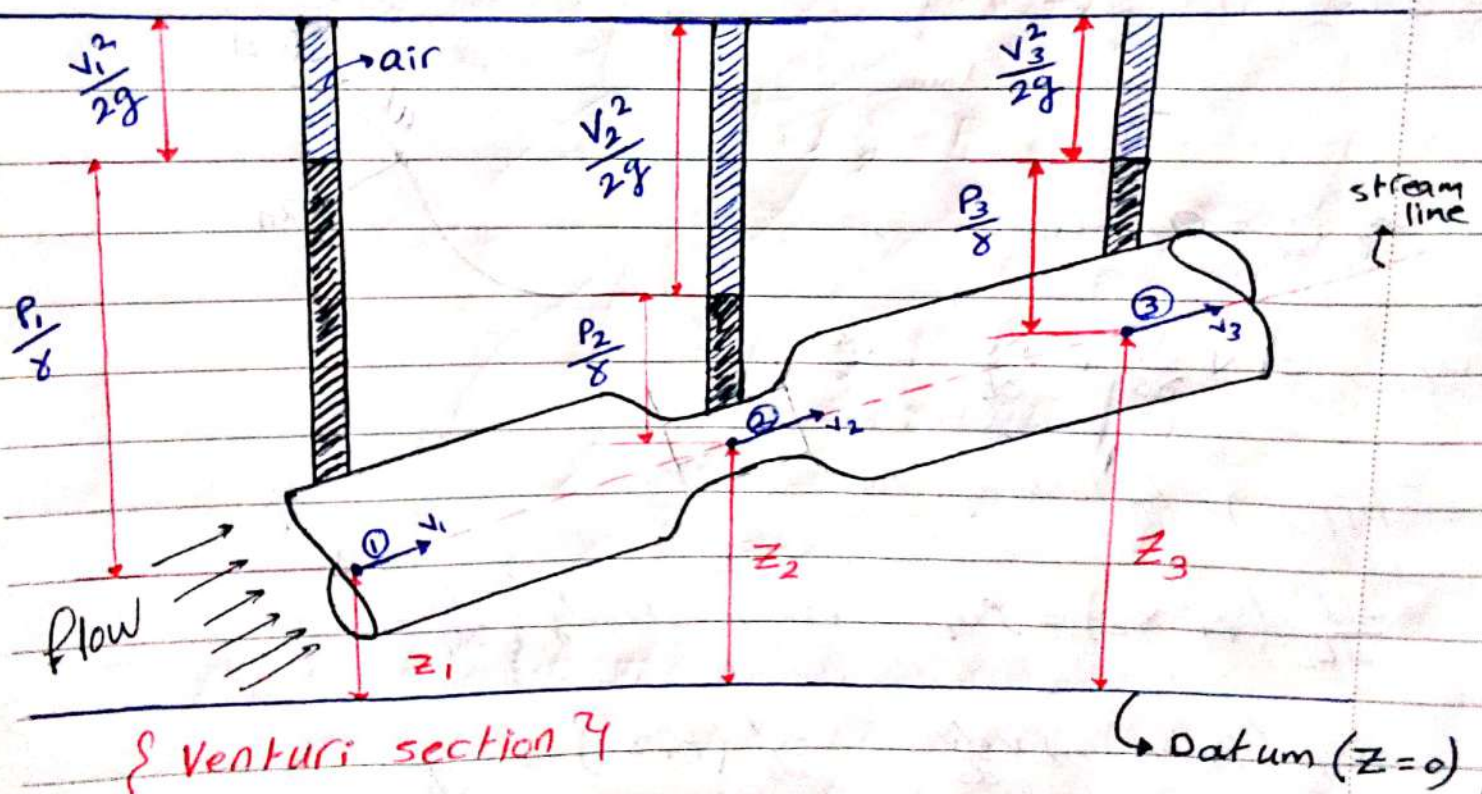 V₁²/2g
→air
V₂²/2g
V₃²/2g
stream
line
P₃/γ
P₁/γ
P₂/γ
③
V₃
②
V₂
①
V₁
Z₂
Z₃
flow
Z₁
{ Venturi section }
Datum (Z=0)